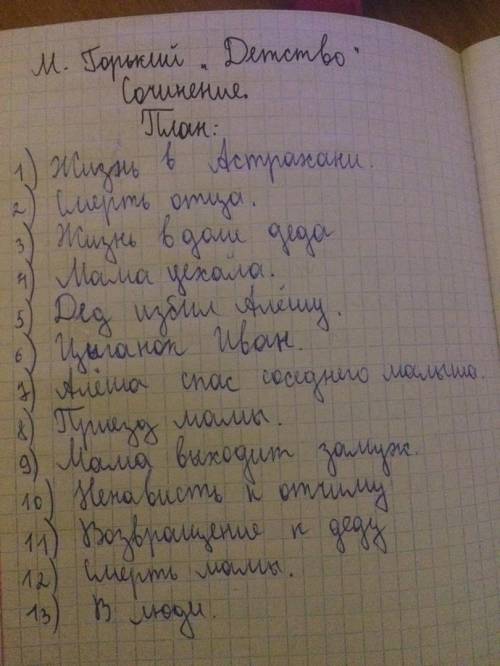 М. Горький „Детство"
Сочинение.
План:
1) Жизнь в Астрахани.
2) Смерть отца.
3) Жизнь в доме деда
4) Мама уехала.
5) Дед избил Алёшу.
6) Цыганок Иван.
7) Алёша спас соседнего малыша.
8) Приезд мамы.
9) Мама выходит замуж.
10) Ненависть к отчиму
11) Возвращение к деду
12) Смерть мамы.
13) В люди.